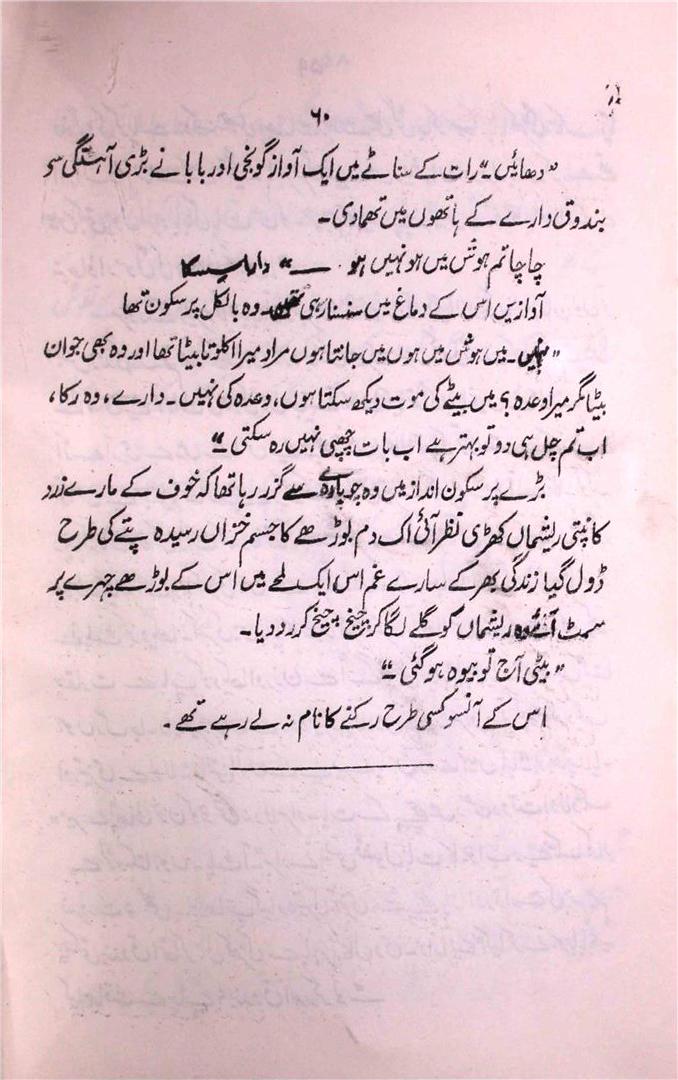 ۶۰
”دھائیں“ رات کے سناٹے میں ایک آواز گونجی اور بابا نے بڑی آہستگی سے
بندوق دارے کے ہاتھوں میں تھمادی۔
چاچا تم ہوش میں ہو نہیں ہو ــ“
آوازیں اس کے دماغ میں سنسنا رہی تھیں۔ وہ بالکل پر سکون تھا
”نہیں۔ میں ہوش میں ہوں میں جانتا ہوں مراد میرا اکلوتا بیٹا تھا اور وہ بھی جوان
بیٹا مگر میرا وعدہ؟ میں بیٹے کی موت دیکھ سکتا ہوں، وعدہ کی نہیں۔ دارے، وہ رکا،
اب تم چل ہی دو تو بہتر ہے اب بات چھپی نہیں رہ سکتی“
بڑے پر سکون انداز میں وہ چوپارے سے گزر رہا تھا کہ خوف کے مارے زرد
کانپتی ریشماں کھڑی نظر آئی اک دم بوڑھے کا جسم خزاں رسیدہ پتے کی طرح
ڈول گیا زندگی بھر کے سارے غم اس ایک لمحے میں اس کے بوڑھے چہرے پر
سمٹ آئے وہ ریشماں کو گلے لگا کر چیخ چیخ کر رو دیا۔
”بیٹی آج تو بیوہ ہو گئی۔“
اس کے آنسو کسی طرح رکنے کا نام نہ لے رہے تھے۔